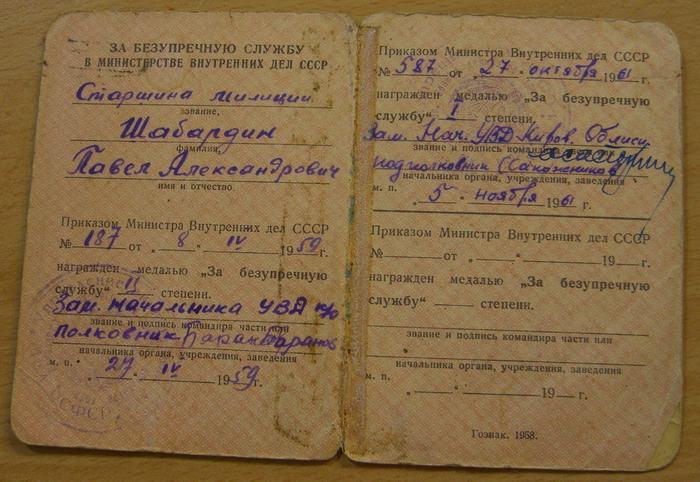 ЗА БЕЗУПРЕЧНУЮ СЛУЖБУ
В МИНИСТЕРСТВЕ ВНУТРЕННИХ ДЕЛ СССР
Старшина милиции
звание,
Шабардин
фамилия,
Павел Александрович
имя и отчество.
Приказом Министра Внутренних дел СССР
№ 187 от „ 8 " IV 1959 г.
награжден медалью „За безупречную
службу" II степени.
Зам. Начальника УВД
звание и подпись командира части или
Полковник
начальника органа, учреждения, заведения
м. п. „ 27 " IV 1959 г.
Приказом Министра Внутренних дел СССР
№ 587 от „ 27 " октября 1961 г.
награжден медалью „За безупречную
службу" I степени.
Зам. Нач. УВД Киров. Облис
звание и подпись командира части или
подполковник (Сапожников
начальника органа, учреждения, заведения
м. п. „ 5 " Ноября 1961 г.
Приказом Министра Внутренних дел СССР
№ от „ " 19 г.
награжден медалью „За безупречную
службу" степени.
звание и подпись командира части или
начальника органа, учреждения, заведения
м. п. „ " 19 г.
Гознак. 1958.